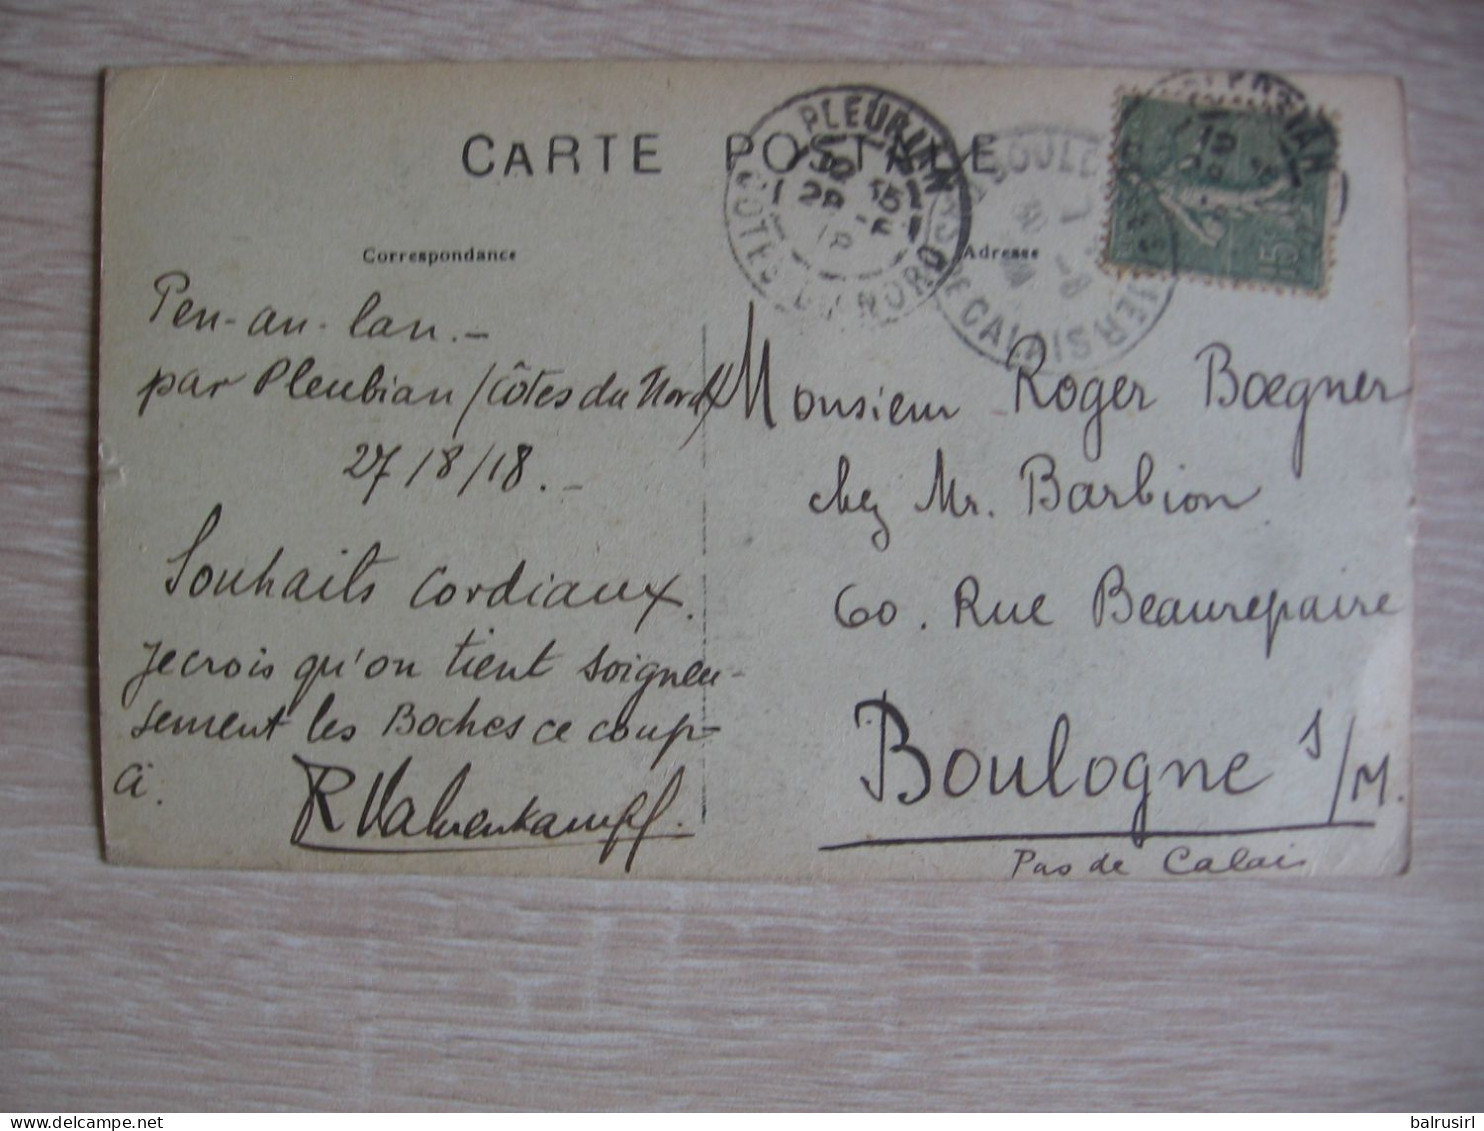 CARTE POSTALE
PLEUBIAN
COTES DU NORD
PAS DE CALAIS
15
Correspondance
Adresse
Pen-an-lan.-
par Pleubian (Côtes du Nord)
27/8/18.-
Souhaits cordiaux.
Je crois qu'on tient soigneu-
sement les Boches ce coup-
ci.
R Vahrenkampf.
Monsieur Roger Boegner
chez Mr. Barbion
60. Rue Beaurepaire
Boulogne s/M.
Pas de Calais
balrusirl